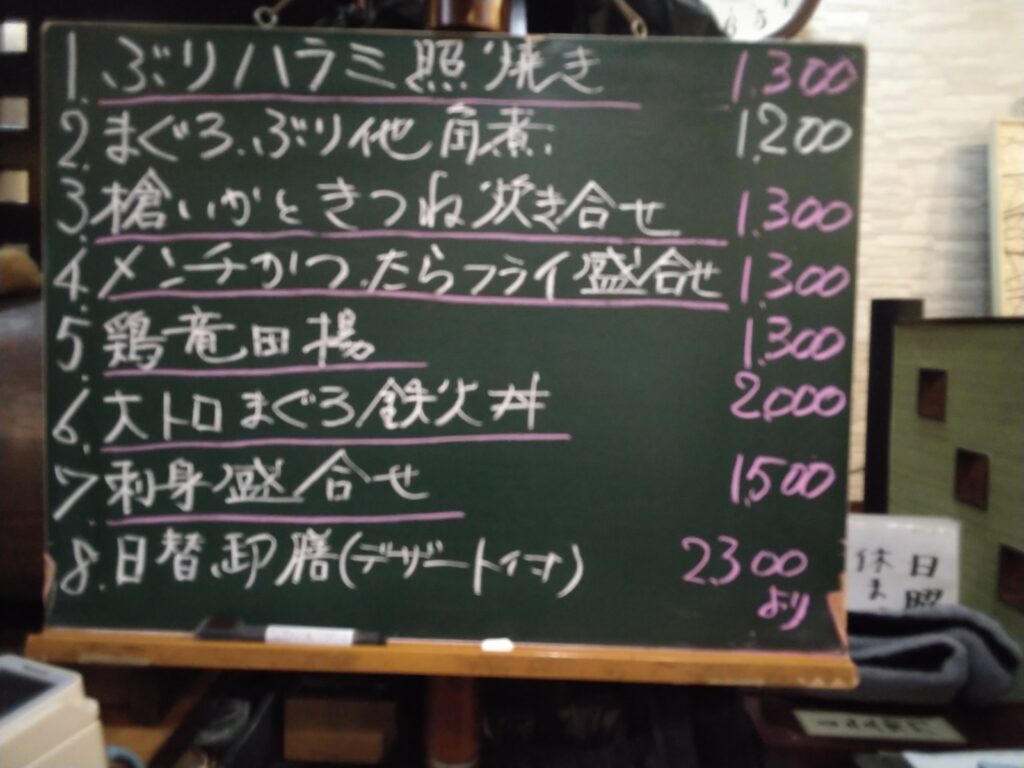 1. ぶりハラミ照焼き 1,300
2. まぐろ.ぶり他角煮 1,200
3. 槍いかときつね炊き合せ 1,300
4. メンチかつ.たらフライ盛合せ 1,300
5. 鶏竜田揚 1,300
6. 大トロまぐろ鉄火丼 2,000
7. 刺身盛合せ 1,500
8. 日替御膳(デザート付) 2,300
より